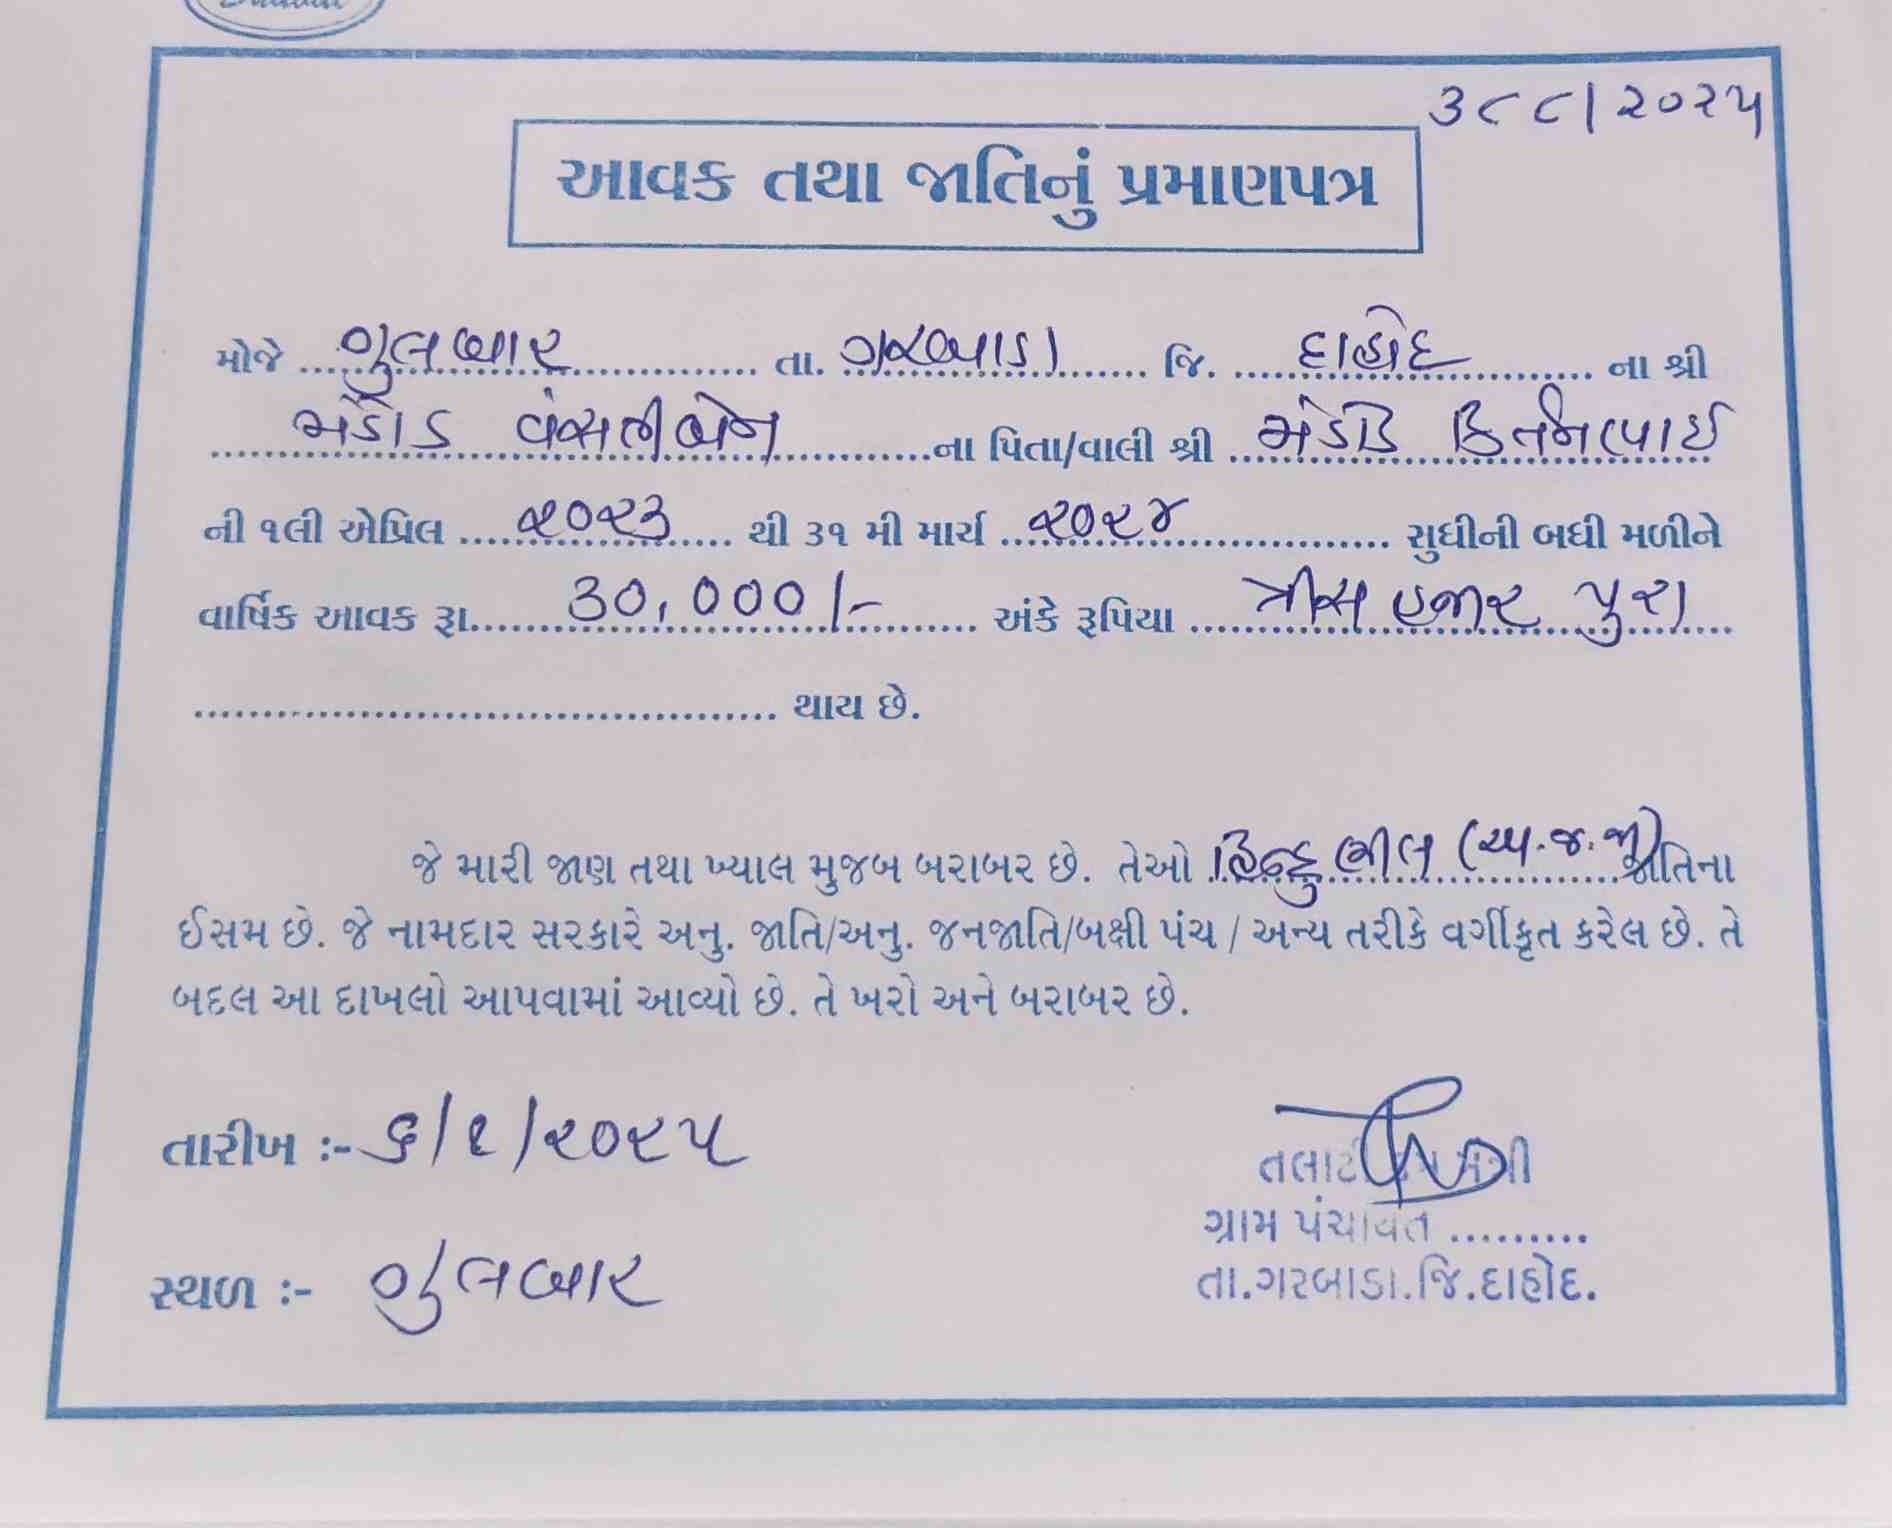 ૩૮૮/૨૦૨૫
આવક તથા જાતિનું પ્રમાણપત્ર
મોજે ગુલબાર તા. ગરબાડા જિ. દાહોદ ના શ્રી
મંડોડ વંસતીબેન ના પિતા/વાલી શ્રી મંડોડ કિર્તનભાઈ
ની ૧લી એપ્રિલ ૨૦૨૩ થી ૩૧ મી માર્ચ ૨૦૨૪ સુધીની બધી મળીને
વાર્ષિક આવક રૂા. 30,000/- અંકે રૂપિયા ત્રીસ હજાર પુરા
થાય છે.
જે મારી જાણ તથા ખ્યાલ મુજબ બરાબર છે. તેઓ હિન્દુ ભીલ (અ.જ.જા) જાતિના
ઈસમ છે. જે નામદાર સરકારે અનુ. જાતિ/અનુ. જનજાતિ/બક્ષી પંચ / અન્ય તરીકે વર્ગીકૃત કરેલ છે. તે
બદલ આ દાખલો આપવામાં આવ્યો છે. તે ખરો અને બરાબર છે.
તારીખ :- ૬/૧/૨૦૨૫
તલાટી મંત્રી
ગ્રામ પંચાયત .........
તા.ગરબાડા.જિ.દાહોદ.
સ્થળ :- ગુલબાર